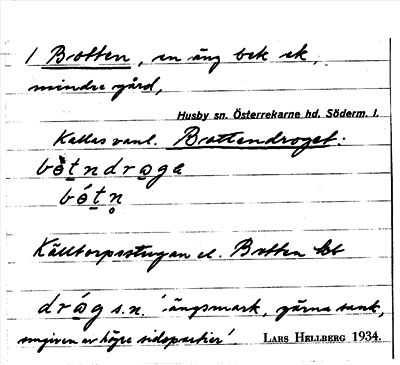 1 Botten, en äng bek ek,
mindre gård,
Husby sn. Österrekarne hd. Söderm. l.
Kallas vanl. Bottendroget:
bòtndrɷga
bótn̥
Källtorpsstugan el. Botten
dróg s.n. 'ängsmark, gärna sank,
omgiven av högre sidopartier'. LARS HELLBERG 1934.